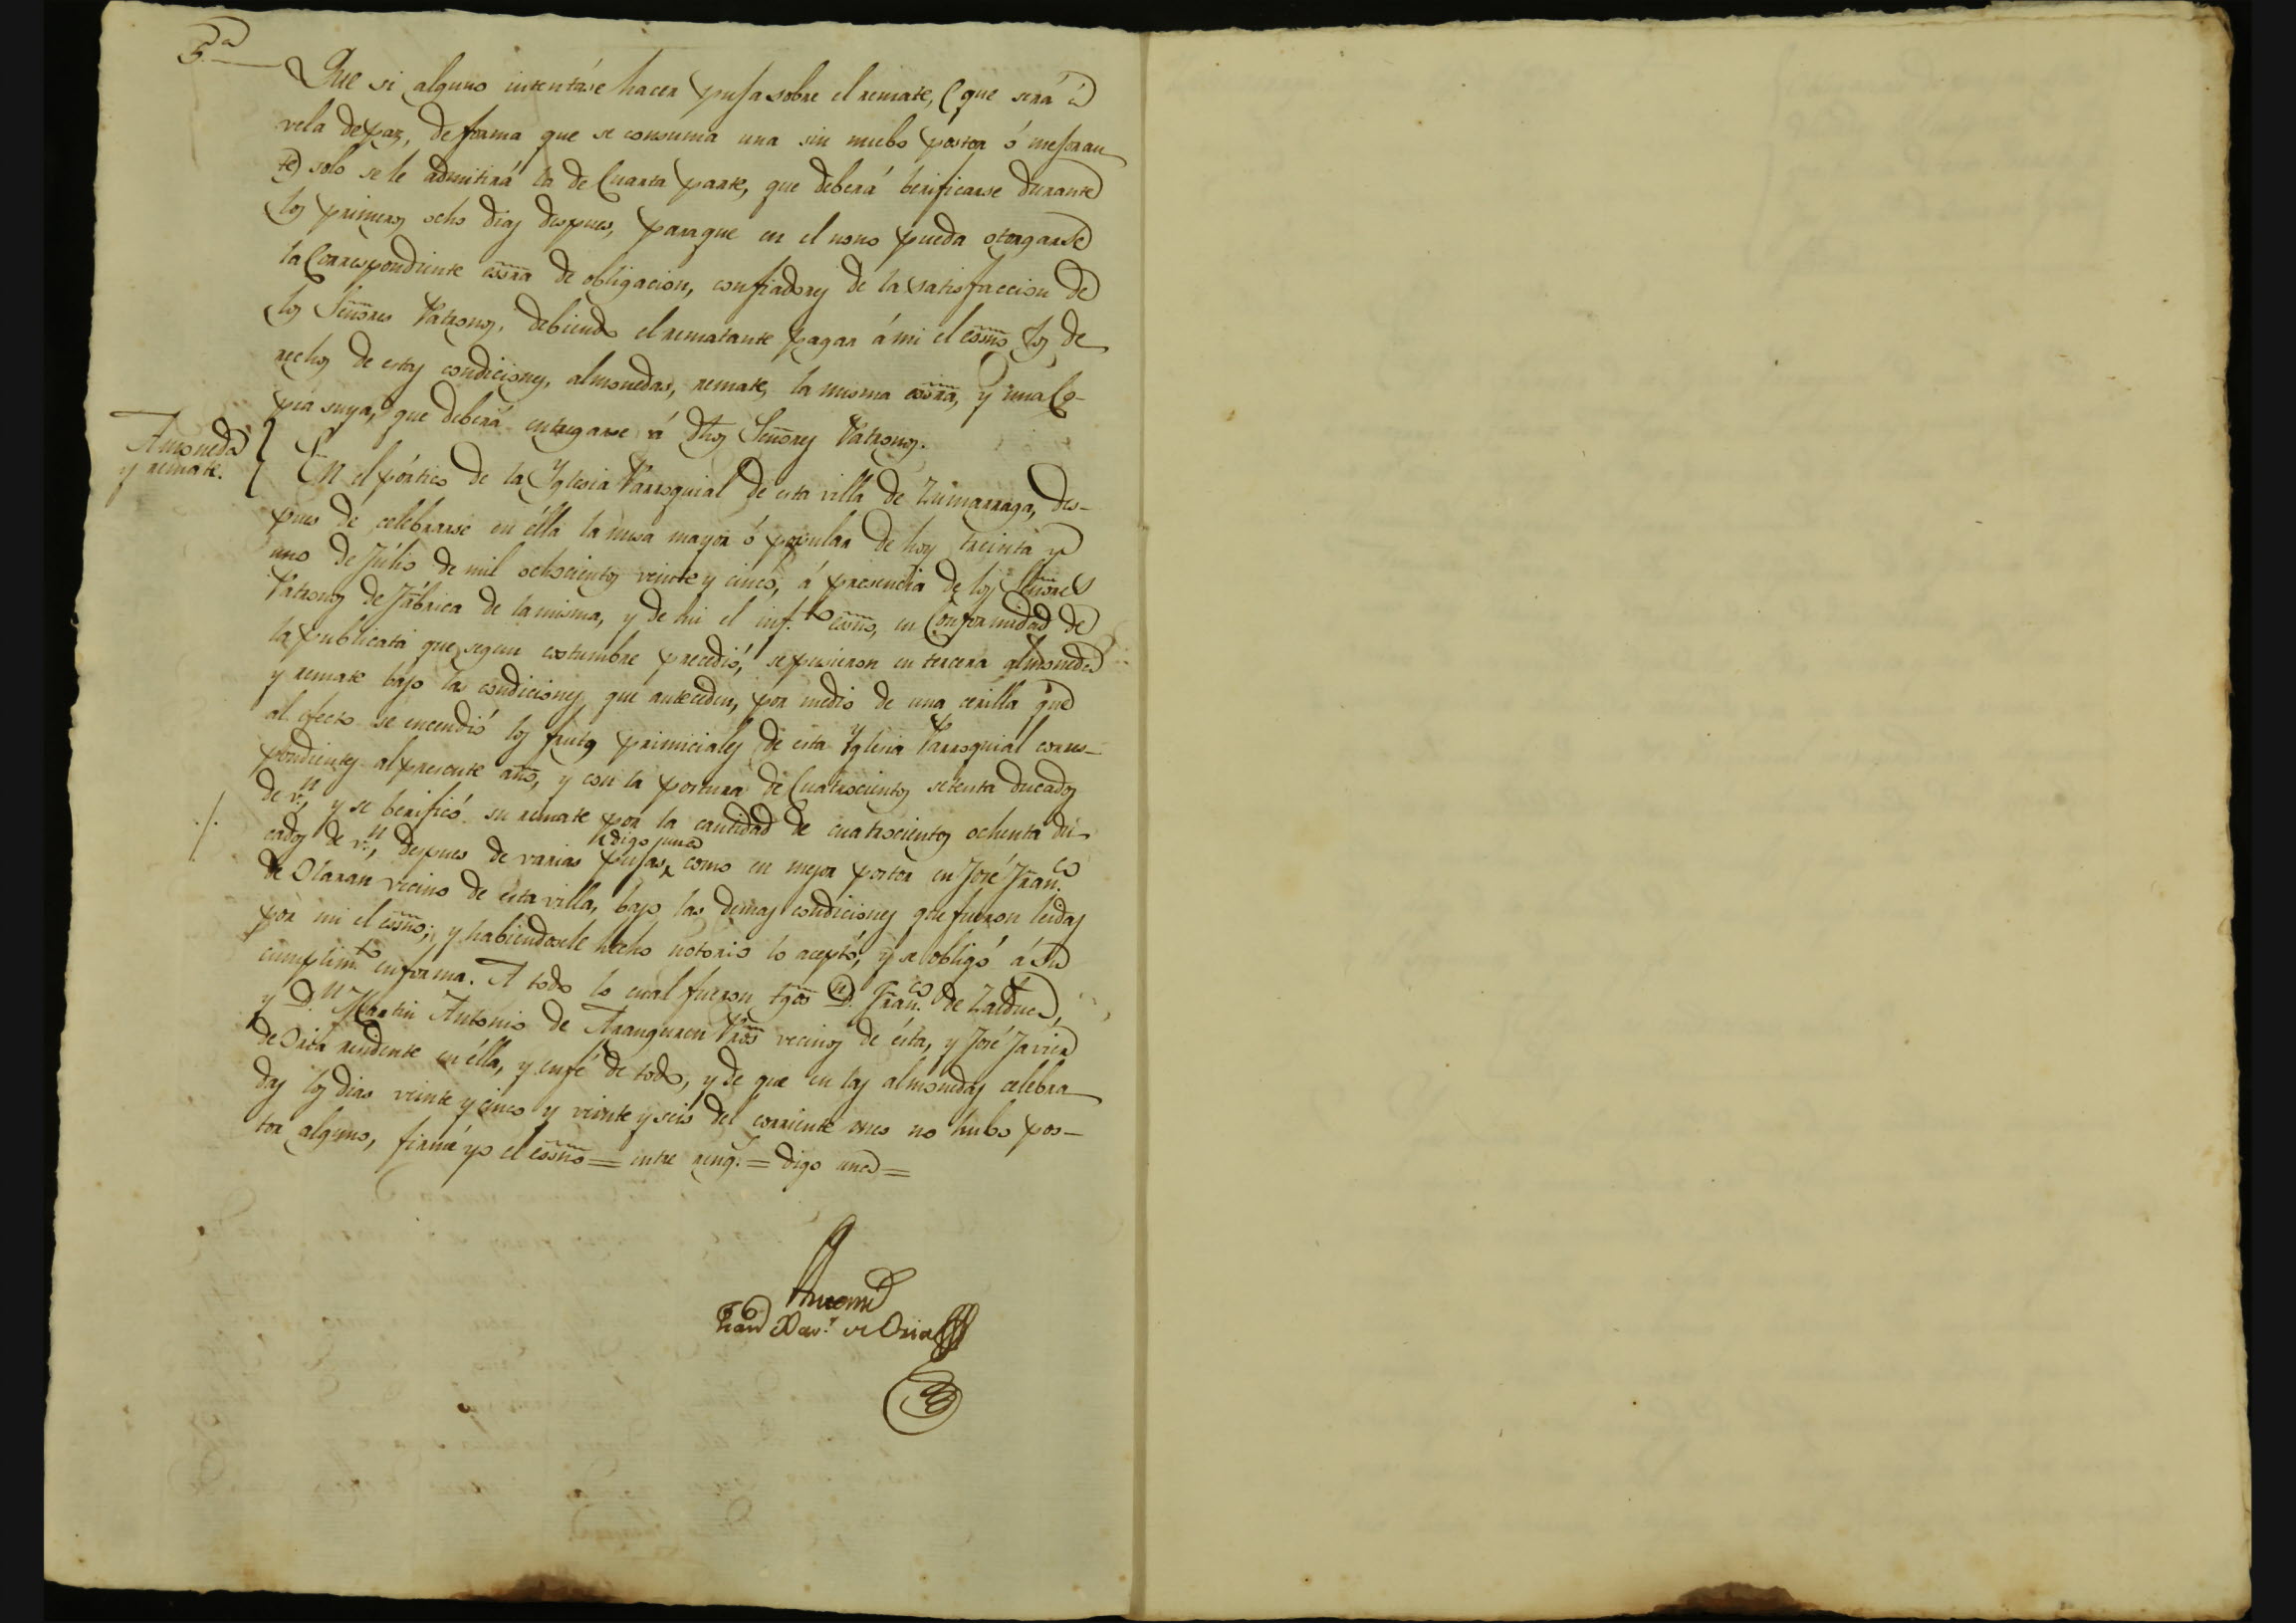 5.a
Que si alguno intentáse hacer puja sobre el remate, (que será á
vela de paz, de forma que se consuma una sin nuebo postor ó mejoran
te) solo se le admitirá la de Cuarta parte, que deberá berificarse durante
los primeros ocho dias despues, para que en el nono pueda otorgarse
la Correspondiente essra de obligacion, con fiadores de la satisfaccion de
los Señores Patronos, debiendo el rematante pagar á mi el essno los de
rechos de estas condiciones, almonedas, remate, la misma essra, y una Co-
pia suya, que deberá entregarse á dhos Señores Patronos.
Amoneda
y remate.
En el pórtico de la Yglesia Parroquial de esta villa de Zumarraga, des-
pues de celebrarse en élla la misa mayor ó popular de hoy treinta y
uno de Júlio de mil ochocientos veinte y cinco, á presencia de los Señores
Patronos de Fábrica de la misma, y de mi el inf.to essno, en Conformidad de
la publicata que segun costumbre precedió, se pusieron en tercera almoneda
y remate bajo las condiciones que anteceden, por medio de una cerilla que
al efecto se encendió los frutos primiciales de esta Yglesia Parroquial corres-
pondientes al presente año, y con la postura de Cuatrocientos setenta ducados
de v.n, y se berificó su remate por la cantidad de cuatrocientos ochenta du-
cados de v.n, despues de varias pujas, como en mejor postor en José Fran.co
digo una
de Olaran vecino de esta villa, bajo las demas condiciones que fueron leidas
por mi el essno; y habiendosele hecho notorio lo aceptó, y se obligó á su
cumplim.to en forma. A todo lo cual fueron tgos D.n Fran.co de Zalduea,
y D.n Martin Antonio de Aranguren Pros vecinos de ésta, y José Javier
de Oria residente en élla, y en fé de todo, y de que en las almonedas celebra
das los dias veinte y cinco y veinte y seis del corriente mes no hubo pos-
tor alguno, firmé yo el essno = entre reng.s = digo una =
Ante mi
Xav.r de Oria